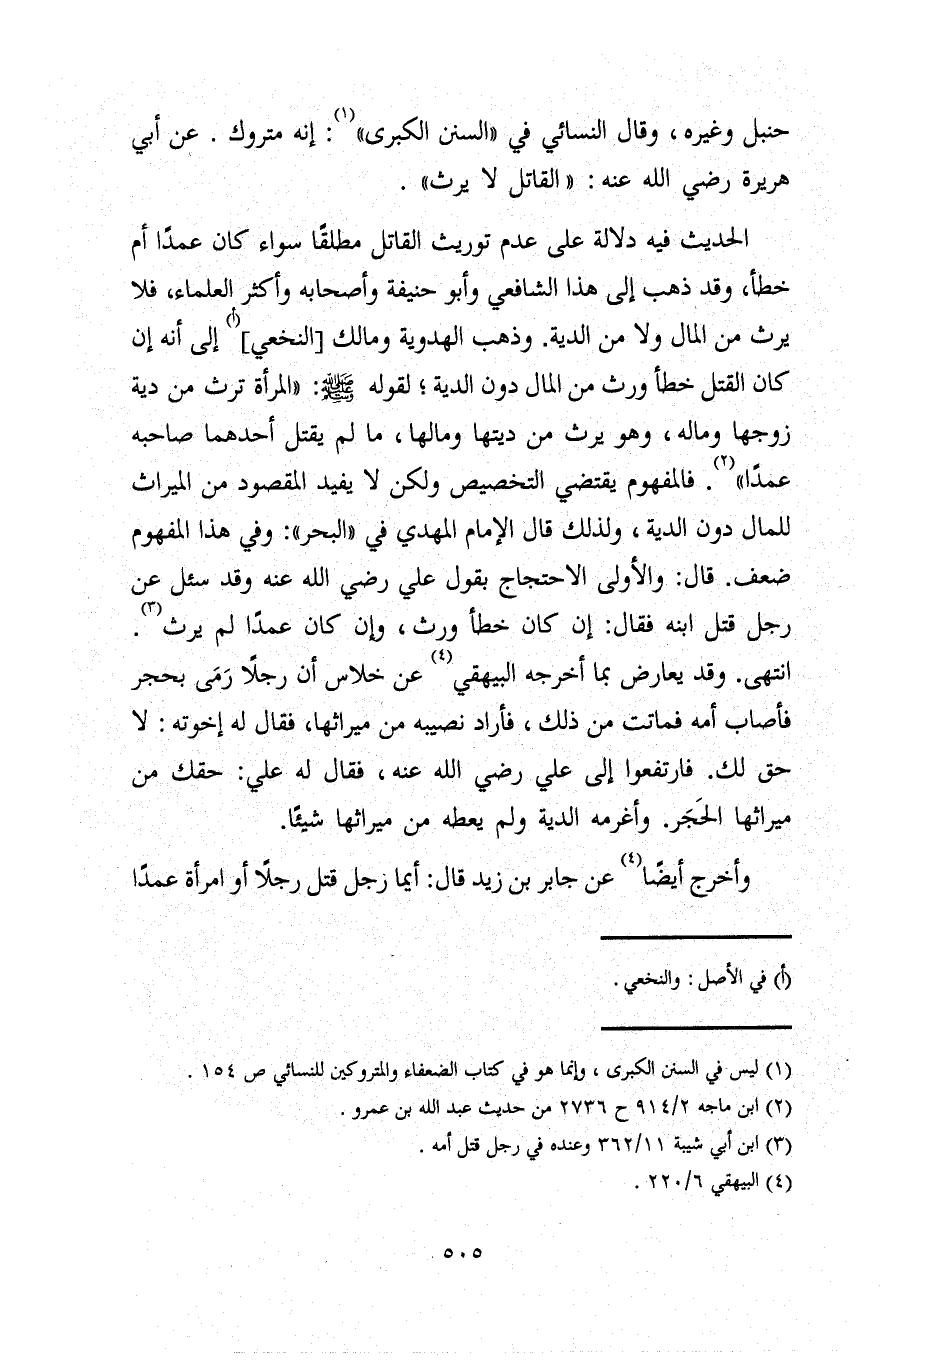 حنبل وغيره ، وقال النسائي في «السنن الكبرى»(١): إنه متروك . عن أبي
هريرة رضي الله عنه : «القاتل لا يرث» .
الحديث فيه دلالة على عدم توريث القاتل مطلقًا سواء كان عمدًا أم
خطأ، وقد ذهب إلى هذا الشافعي وأبو حنيفة وأصحابه وأكثر العلماء، فلا
يرث من المال ولا من الدية. وذهب الهدوية ومالك [النخعي](أ) إلى أنه إن
كان القتل خطأ ورث من المال دون الدية ؛ لقوله ﷺ: «المرأة ترث من دية
زوجها وماله ، وهو يرث من ديتها ومالها ، ما لم يقتل أحدهما صاحبه
عمدًا»(٢). فالمفهوم يقتضي التخصيص ولكن لا يفيد المقصود من الميراث
للمال دون الدية ، ولذلك قال الإمام المهدي في «البحر»: وفي هذا المفهوم
ضعف. قال: والأولى الاحتجاج بقول علي رضي الله عنه وقد سئل عن
رجل قتل ابنه فقال: إن كان خطأ ورث ، وإن كان عمدًا لم يرث(٣).
انتهى. وقد يعارض بما أخرجه البيهقي(٤) عن خلاس أن رجلًا رَمَى بحجر
فأصاب أمه فماتت من ذلك ، فأراد نصيبه من ميراثها، فقال له إخوته : لا
حق لك. فارتفعوا إلى علي رضي الله عنه ، فقال له علي: حقك من
ميراثها الحَجَر. وأغرمه الدية ولم يعطه من ميراثها شيئًا.
وأخرج أيضًا(٤) عن جابر بن زيد قال: أيما رجل قتل رجلًا أو امرأة عمدًا
(أ) في الأصل : والنخعي .
(١) ليس في السنن الكبرى ، وإنما هو في كتاب الضعفاء والمتروكين للنسائي ص ١٥٤ .
(٢) ابن ماجه ٩١٤/٢ ح ٢٧٣٦ من حديث عبد الله بن عمرو .
(٣) ابن أبي شيبة ٣٦٢/١١ وعنده في رجل قتل أمه .
(٤) البيهقي ٢٢٠/٦ .
٥٠٥